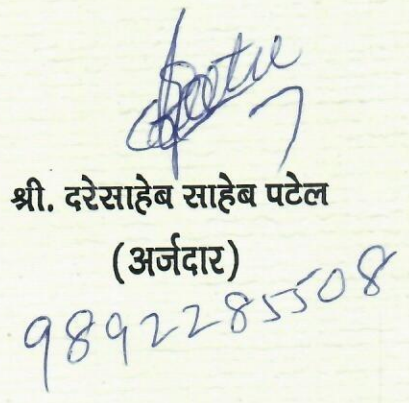 श्री. दरेसाहेब साहेब पटेल
(अर्जदार)
9892285508